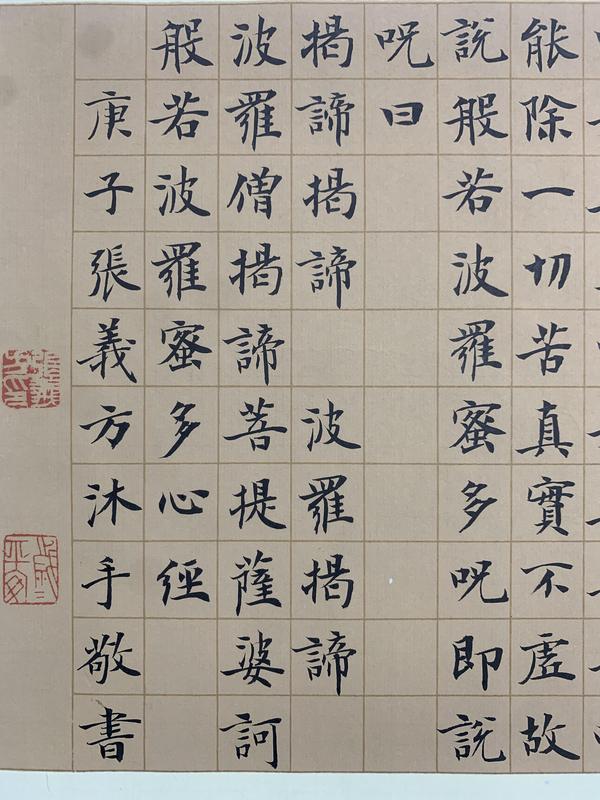 能除一切苦真實不虛故
說般若波羅蜜多呪即說
呪曰
揭諦揭諦 波羅揭諦
波羅僧揭諦菩提薩婆訶
般若波羅蜜多心經
庚子張義方沐手敬書
張義方印